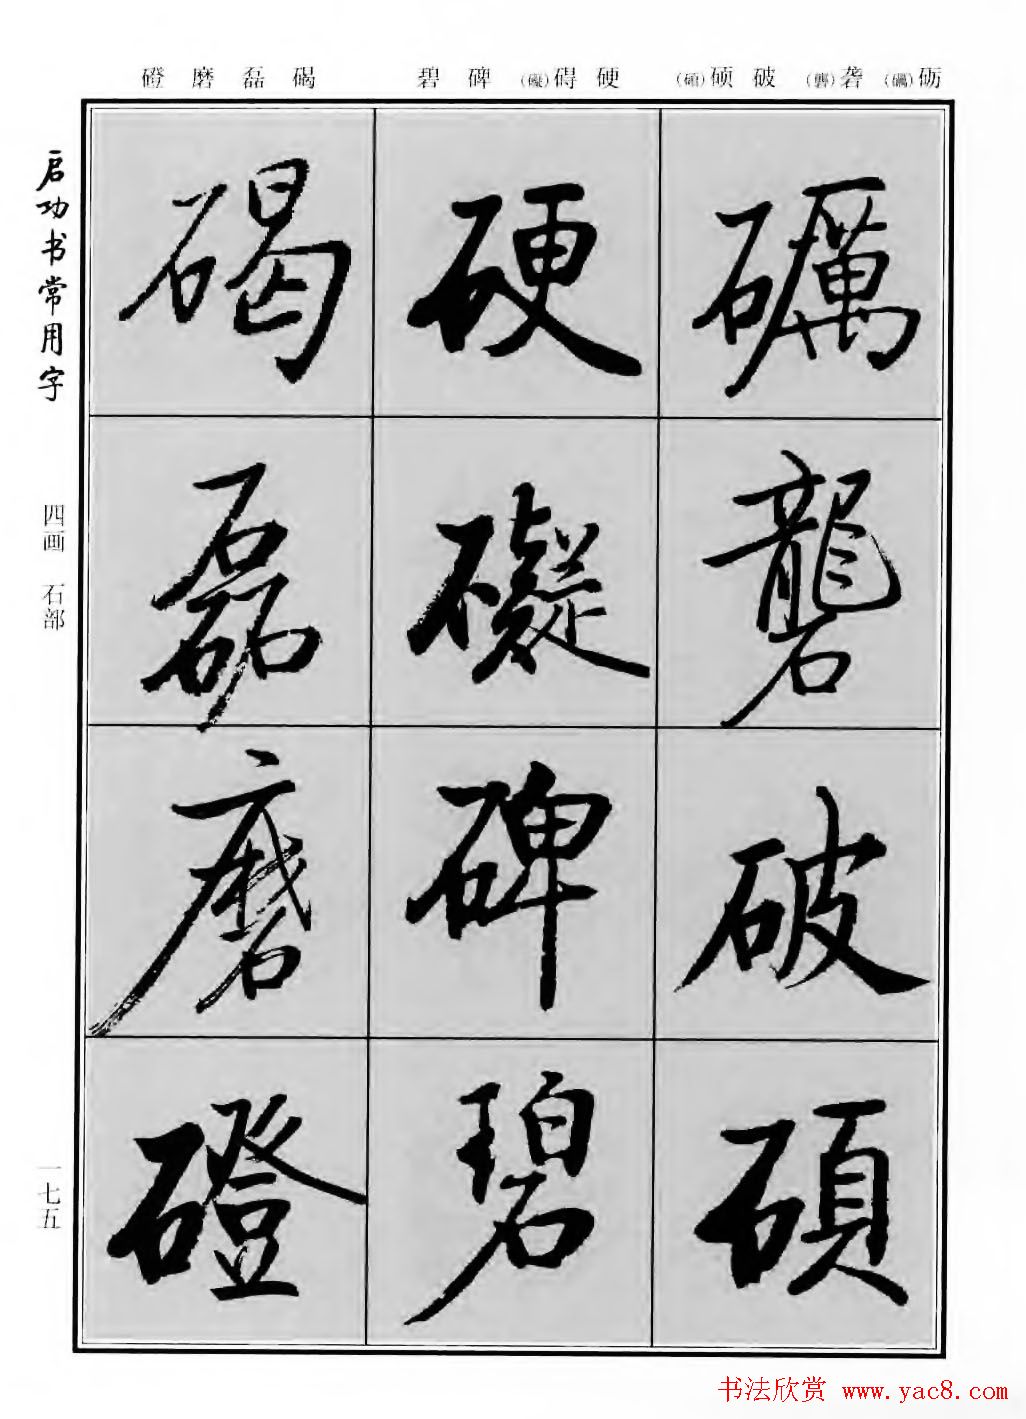 磴 磨 磊 碣　碧 碑 (礙)碍 硬　(碩)硕 破 (礱)砻 (礪)砺
启功书常用字
四画 石部
一七五
礪
礱
破
碩
硬
礙
碑
碧
碣
磊
磨
磴
书法欣赏 www.yac8.com